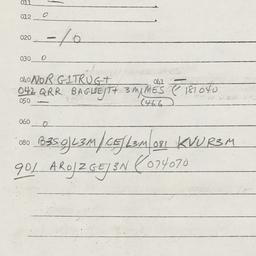 011
012 0
020 —/0
030 0
040 NOR G1TRUG+ 061 —
042 QRR BAGUEJT+ 3M/MES (181040
050 — (466)
060 0
080 B3SO/L3M/CEJL3M/081 KVUR3M
901 ARO/ZGE/3N (074070